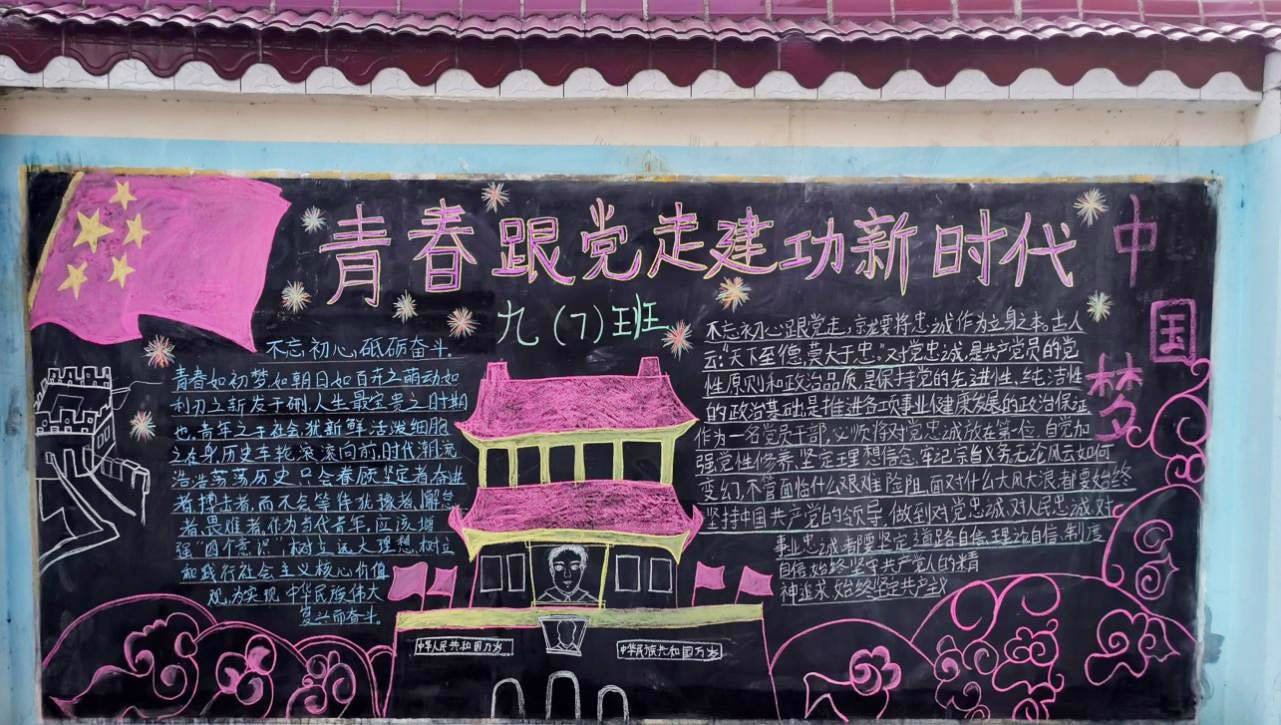 青春跟党走建功新时代
九（7）班
中国梦
不忘初心，砥砺奋斗。
青春如初梦，如朝日，如百卉之萌动，如
利刃之新发于硎，人生最宝贵之时期
也。青年之于社会，犹新鲜活泼细胞
之在身。历史车轮滚滚向前，时代潮流
浩浩荡荡。历史只会眷顾坚定者、奋进
者、搏击者，而不会等待犹豫者、懈怠
者、畏难者。作为当代青年，应该增
强“四个意识”，树立远大理想，树立
和践行社会主义核心价值
观，为实现中华民族伟大
复兴而奋斗。
不忘初心跟党走，就要将忠诚作为立身之本。古人
云：“天下至德，莫大于忠。”对党忠诚，是共产党员的党
性原则和政治品质，是保持党的先进性、纯洁性
的政治基础，是推进各项事业健康发展的政治保证。
作为一名党员干部，必须将对党忠诚放在第一位，自觉加
强党性修养，坚定理想信念，牢记宗旨义务，无论风云如何
变幻，不管面临什么艰难险阻，面对什么大风大浪，都要始终
坚持中国共产党的领导，做到对党忠诚，对人民忠诚，对
事业忠诚，都要坚定道路自信、理论自信、制度
自信，始终坚守共产党人的精
神追求，始终坚定共产主义
中华人民共和国万岁
中华民族共和国万岁